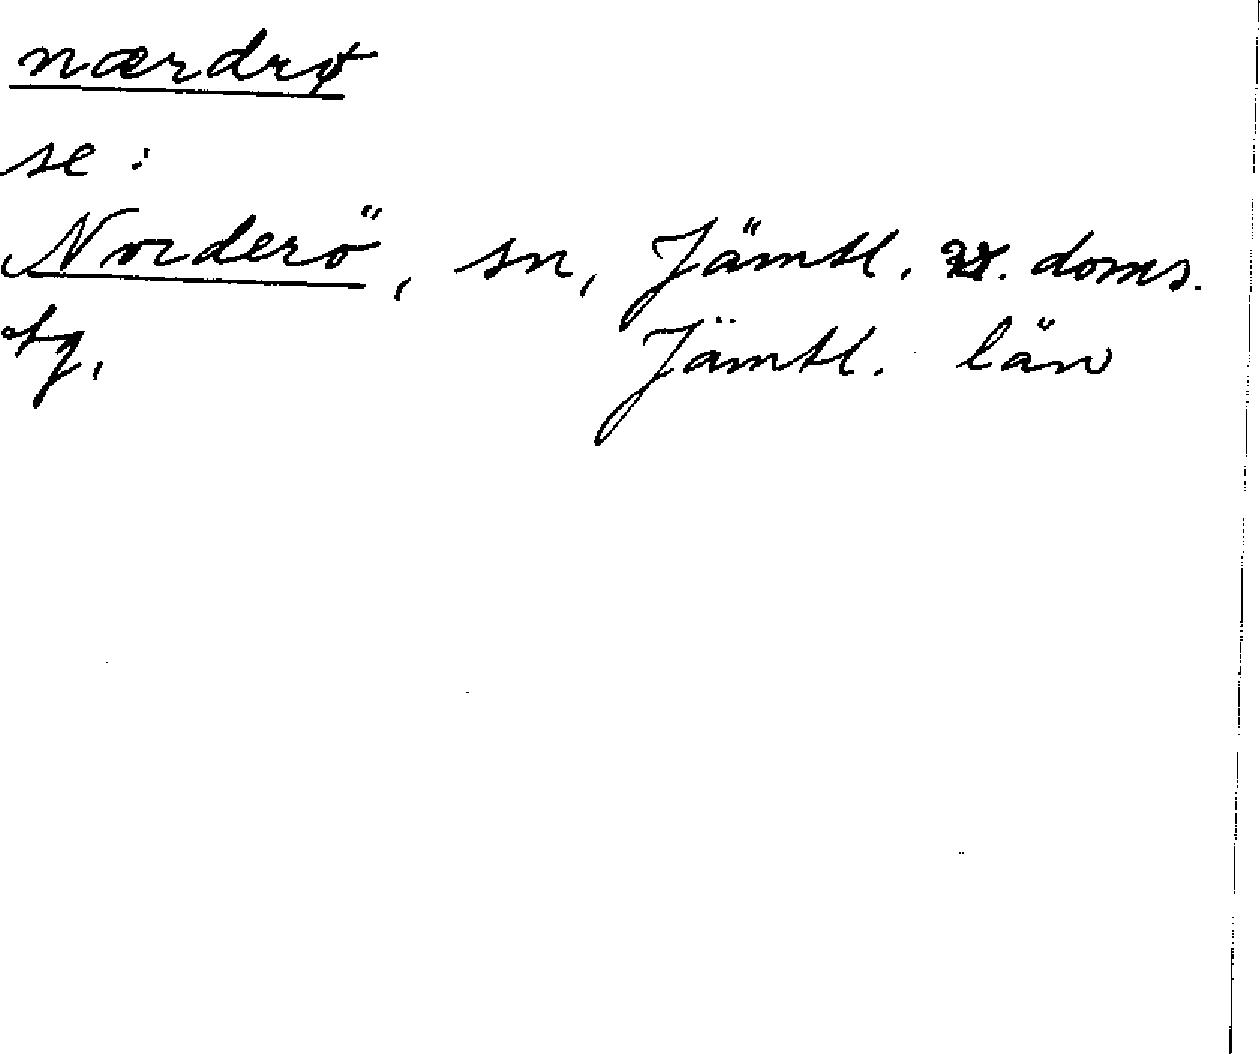 nærdrø
se:
Norderö, sn, Jämtl. v. doms.
tg, Jämtl. län